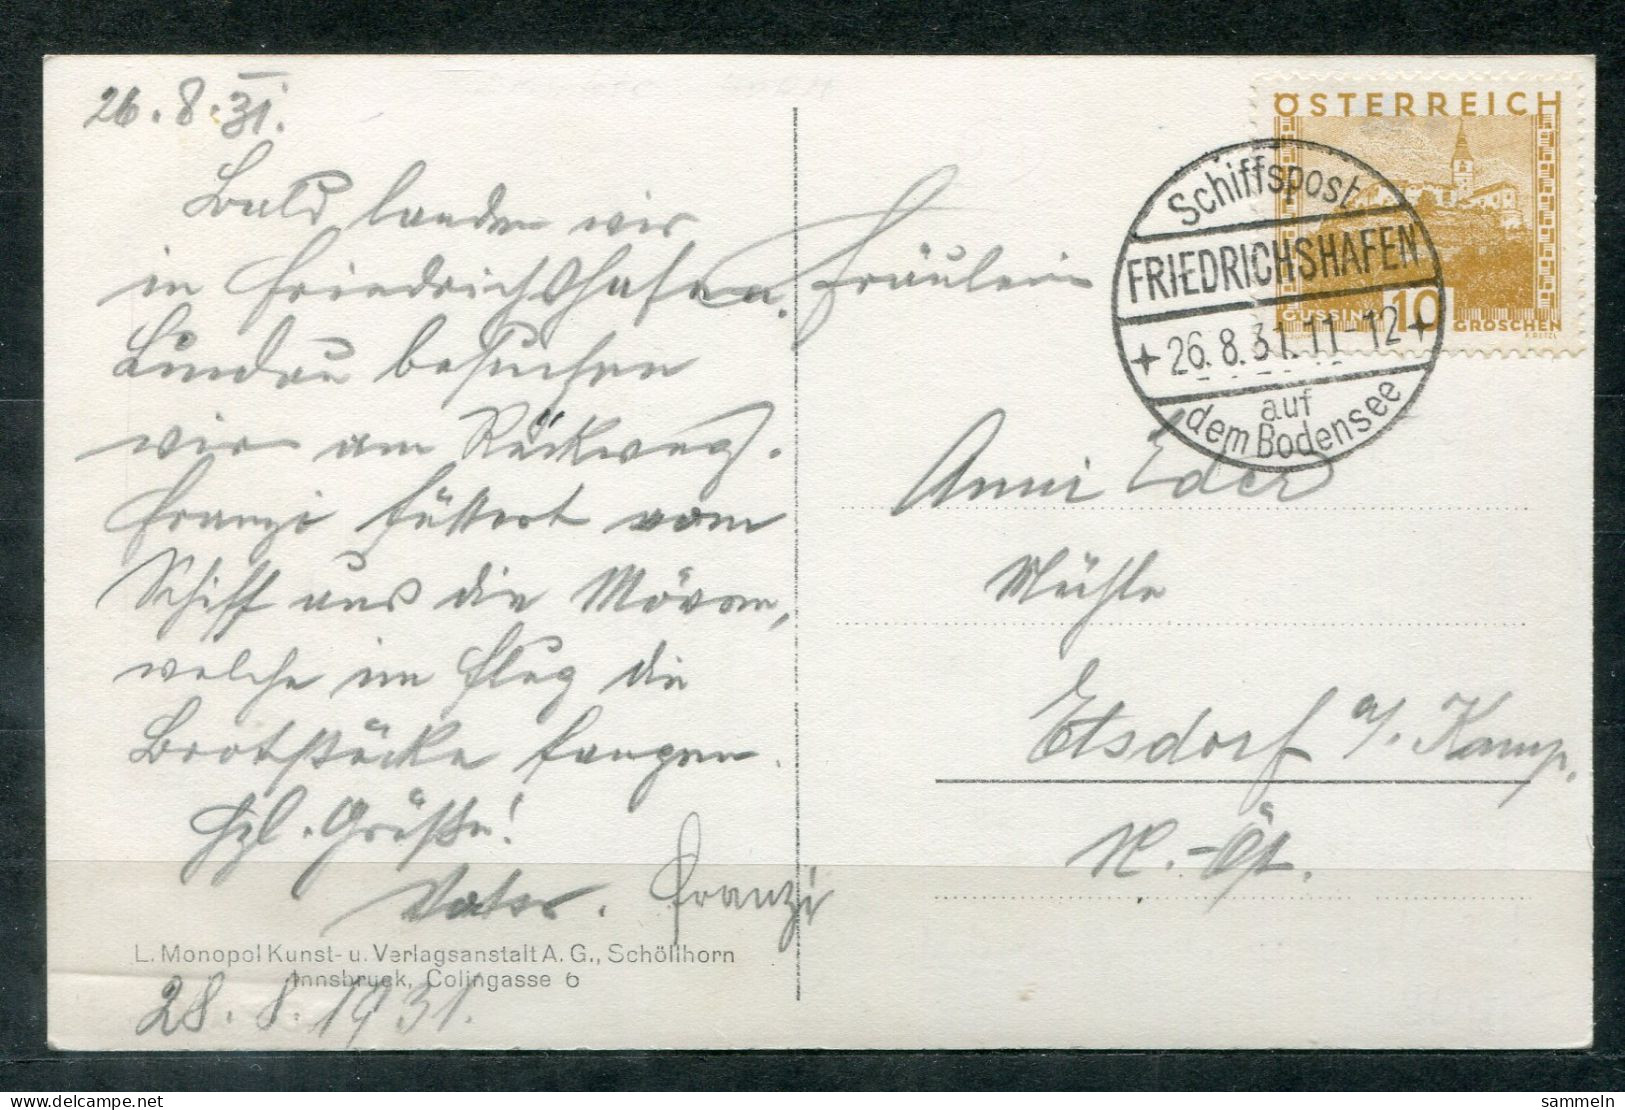 26.8.31.
Bald landen wir
in Friedrichshafen.
Lindau besuchen
wir am Rückweg.
Franzi füttert vom
Schiff aus die Möven,
welche im Flug die
Brotstücke fangen.
Hzl. Grüße!
Vater. Franzi
L. Monopol Kunst- u. Verlagsanstalt A. G., Schöllhorn
Innsbruck, Colingasse 6
28.8.1931.
ÖSTERREICH
GÜSSING 10 GROSCHEN
Schiffspost
FRIEDRICHSHAFEN
+ 26.8.31.11-12 +
auf
dem Bodensee
Fräulein
Anni Eder
Mühle
Etsdorf a/. Kamp.
N.-Öst.
sammeln